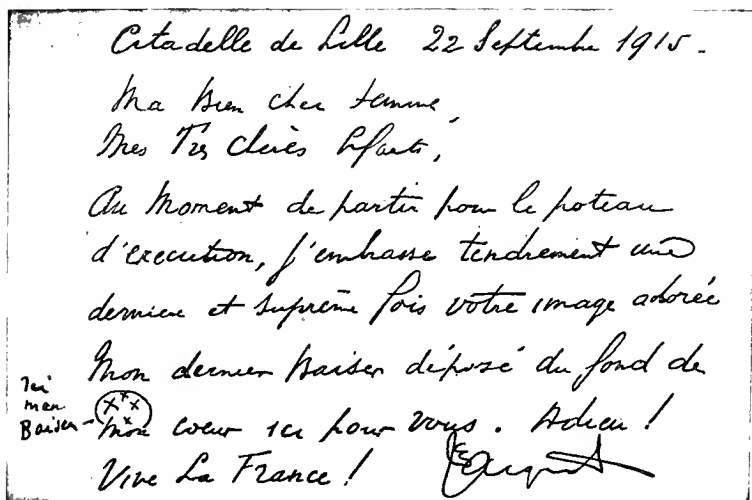 Citadelle de Lille 22 Septembre 1915.
Ma Bien cher femme,
Mes Tres chères Enfants,
Au Moment de partir pour le poteau
d'execution, j'embrasse tendrement une
derniere et suprême fois votre image adorée
Mon dernier Baiser déposé du fond de
Ici
mon
Baiser -
mon coeur ici pour vous. Adieu !
Vive La France !